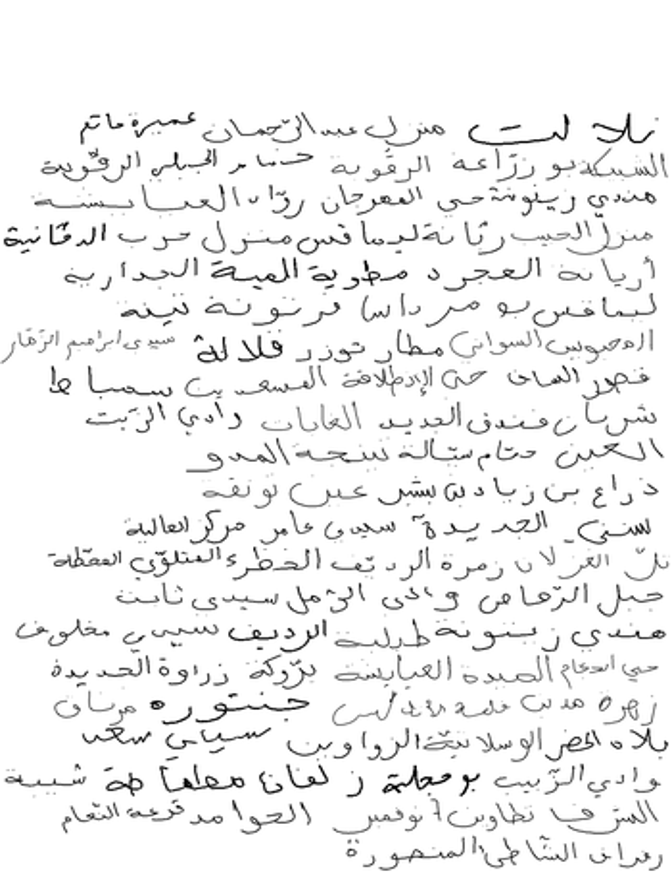 تلالت منزل عبد الرّحمان عميرة حاتم
الشبيكة بو زرّاعة الرقوبة حمّام الجبلي الرقّوبة
هندي زيتونة حي المهرجان روّاد العبابسة
منزل الحبيب رنّانة ليماقس منزل حرب الدخّانية
أريانة العجرد مطوية الميّة الجدارية
ليماقس بومرداس قرنونة نينة
المحبوس السواني مطار توزر قلالة سيدي ابراهيم الزهار
قصور الساف حيّ الإنطلاقة المسعدين سمباط
شربان فندق الجديد الغابات وادي الزيت
العين حمّام سيّالة سبخة المدو
ذراع بن زياد بن بشير عين نونفة
سنني الجديدة سيدي عامر مركز العالية
تلّ الغزلان زمرة الرديّف الخطرة المتلوّي المحطّة
جبل الرّصاص وادي الرّمل سيدي ثابت
هندي زيتونة طبلبة الرديف سيدي مخلوف
حيي الدعام الصبدة العبابسة برّوكة زراوة الجديدة
زهرة مدين قلعة الأندلس جنتورة مرناق
بلاد الحضر الوسلاتيّة الزواوين سيدي سعد
وادي الزّبيب بومجلية زلفان معلقاطة شبيبة
الشرفا تطاوين 7 نوفمبر الحوامد قرعة النعام
رفراف الشّاطئ المنصورة